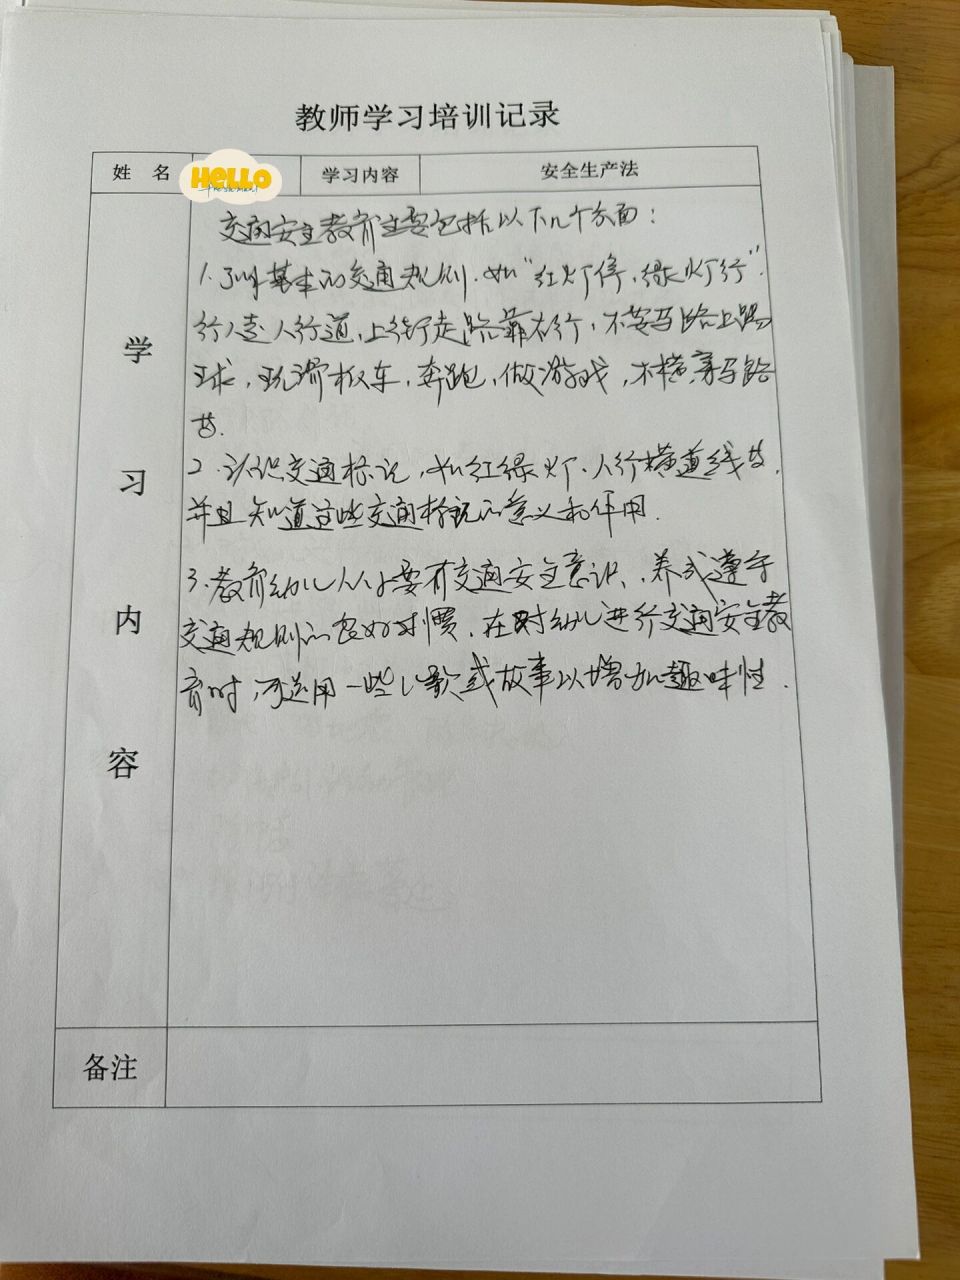 教师学习培训记录
姓 名 HELLO 学习内容 安全生产法
学习内容
交通安全教育主要包括以下几个方面：
1.了解基本的交通规则.如"红灯停,绿灯行".
行人走人行道,上街走路靠右行,不要马路上踢
球,玩滑板车,奔跑,做游戏,不横穿马路
等.
2.认识交通标记,如红绿灯.人行横道线等,
并且知道这些交通标记的意义和作用.
3.教育幼儿从小要有交通安全意识,养成遵守
交通规则的良好习惯,在对幼儿进行交通安全教
育时,可选用一些儿歌或故事以增加趣味性.
备注